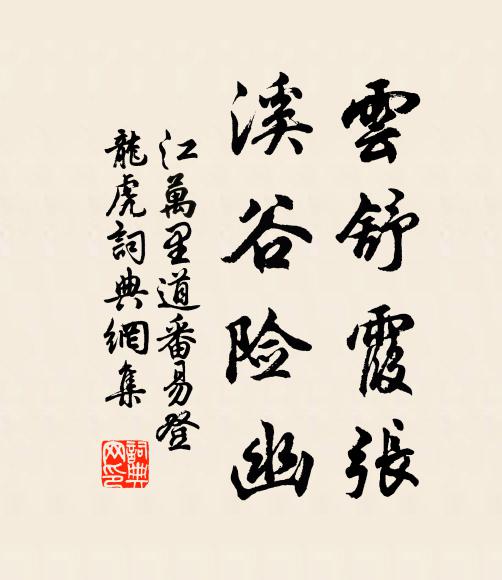 雲舒霞張
溪谷险幽
江萬里道番易登
龍虎詞典網集
詞典
网印